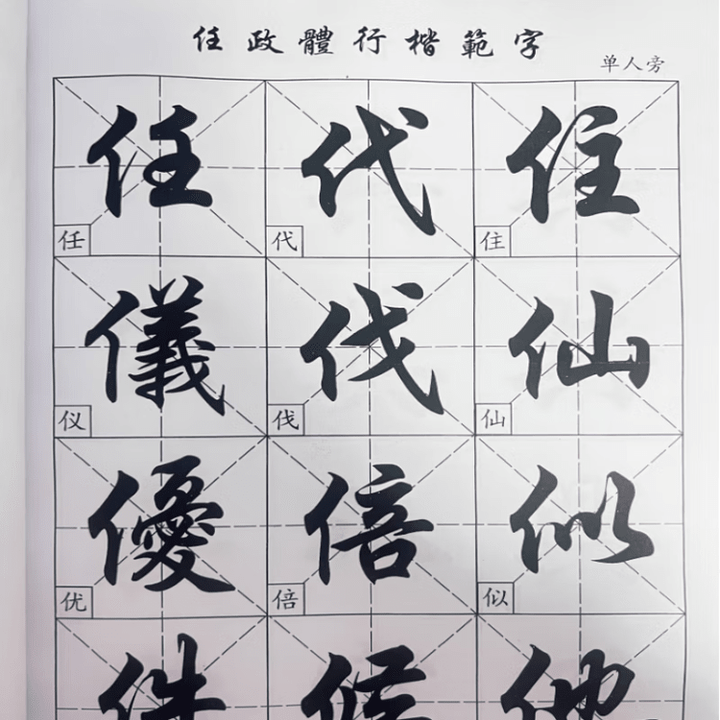 任政體行楷範字
单人旁
任 代 住
任 代 住
儀 伐 仙
仪 伐 仙
優 倍 似
优 倍 似
件 候 他